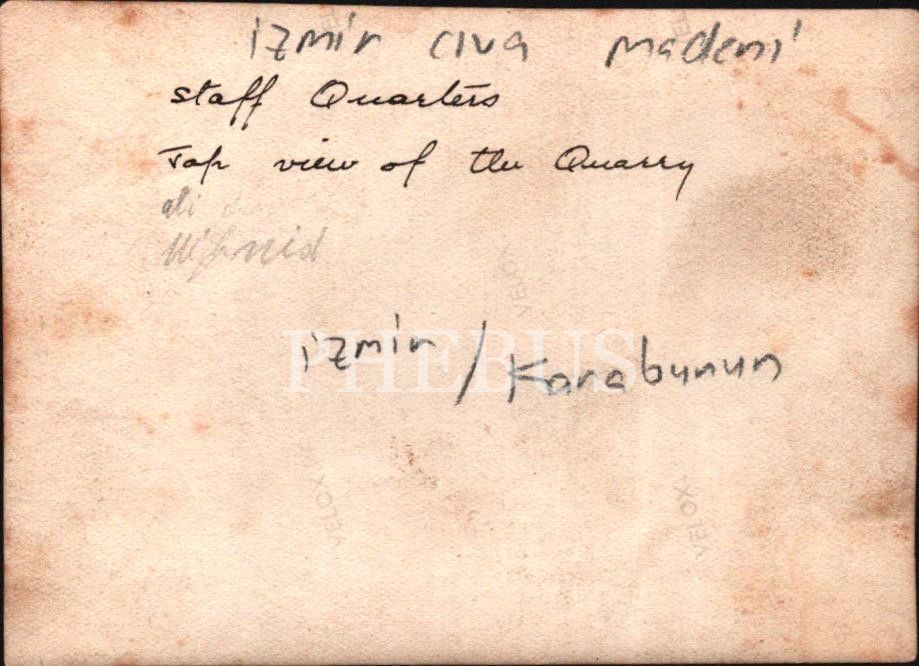 izmir cıva madeni
staff Quarters
Top view of the Quarry
ali
izmir / Karaburun
PHEBUS
VELOX
VELOX
VELOX